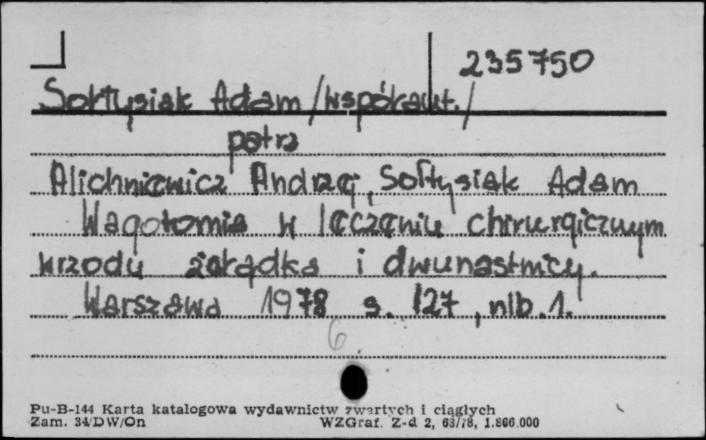 235750
Sołtysiak Adam /współaut./
patrz
Alichniewicz Andrzej, Sołtysiak Adam
Wagotomia w leczeniu chirurgicznym
wrzodu żołądka i dwunastnicy.
Warszawa 1978 s. 127, nlb. 1.
6
Pu-B-144 Karta katalogowa wydawnictw zwartych i ciągłych
Zam. 34/DW/On WZGraf. Z-d 2, 63/78, 1.866.000